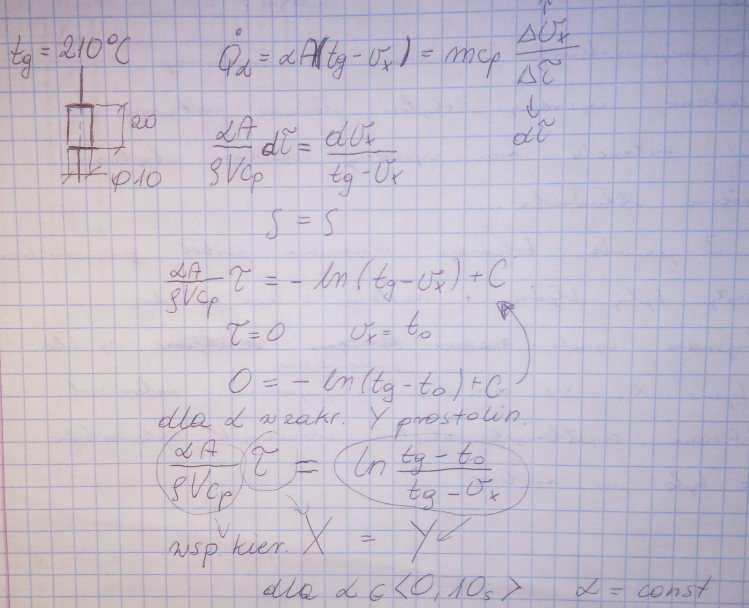 tg = 210°C
Q̇α = αA(tg - υx) = mcp Δυx/Δτ
↓
dτ
20
φ10
αA/ρVcp dτ = dυx/(tg - υx)
∫ = ∫
αA/ρVcp τ = - ln(tg - υx) + C
τ = 0 υx = to
0 = - ln(tg - to) + C
dla α w zakr. Y prostolin.
αA/ρVcp τ = ln (tg - to)/(tg - υx)
wsp. kier. X = Y
dla α ∈ <0, 10s> α = const